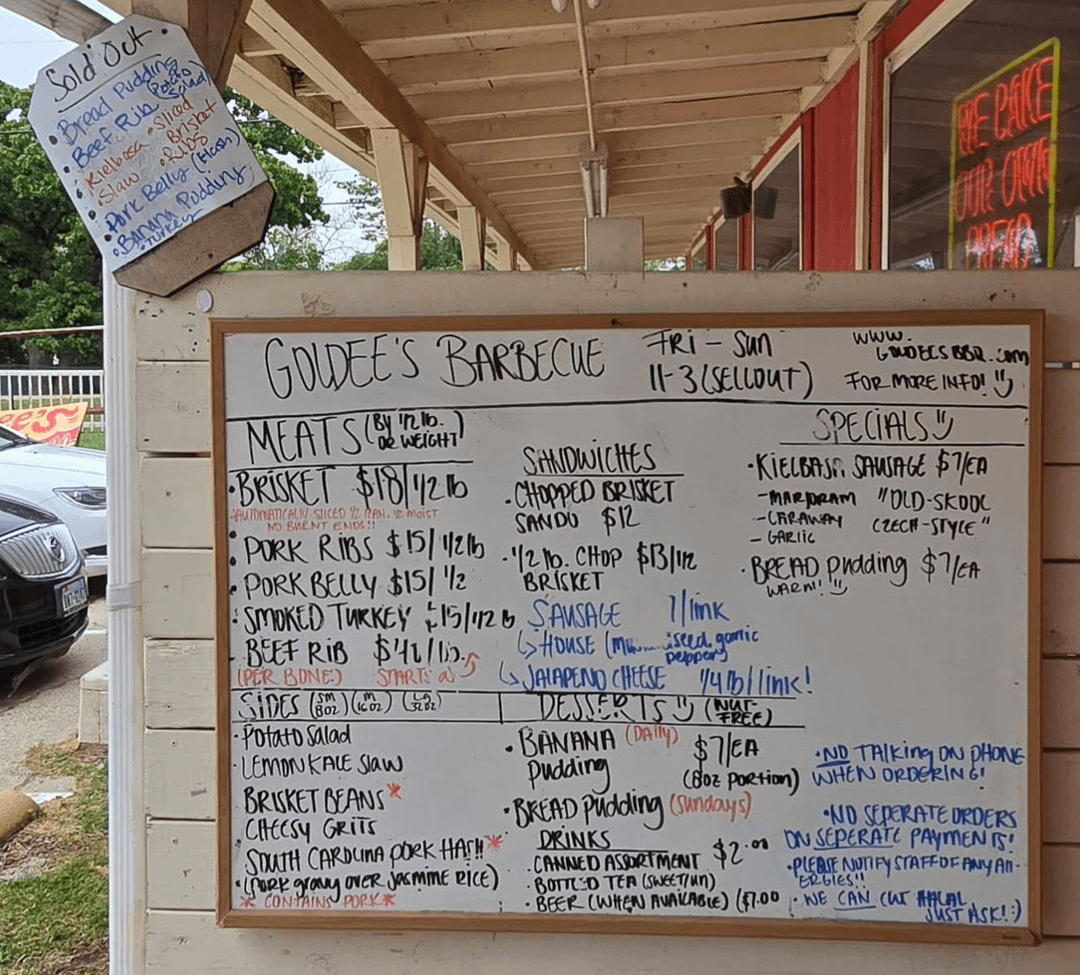 Sold Out
• Bread Pudding
• Beef Rib (Potato Salad)
• Kielbasa • Sliced Brisket
• Slaw • Ribs
• Pork Belly (Hash)
• Banana Pudding
• Turkey
WE BAKE
OUR OWN
BREAD
GOLDEE'S BARBECUE
FRI - SUN
11-3 (SELLOUT)
WWW.
GOLDEESBBQ.COM
FOR MORE INFO!
MEATS (BY 1/2 lb. OR WEIGHT)
• BRISKET $18/1/2 lb
*AUTOMATICALLY SLICED 1/2 LEAN, 1/2 MOIST
NO BURNT ENDS!!
• PORK RIBS $15/1/2 lb
• PORK BELLY $15/ 1/2
• SMOKED TURKEY $15/1/2 lb
- BEEF RIB
(PER BONE) STARTS @
SANDWICHES
• CHOPPED BRISKET
SANDO $12
• 1/2 lb. CHOP $13/1/2
BRISKET
SAUSAGE 7/link
↳ HOUSE
peppery
↳ JALAPENO CHEESE 1/4 lb/link!
SPECIALS
• KIELBASA SAUSAGE $7/EA
- MARJORAM "OLD-SKOOL
- CARAWAY CZECH-STYLE"
- GARLIC
• BREAD Pudding $7/EA
WARM!
SIDES (SM 8 OZ) (M 16 OZ) (LG 32 OZ)
• POTATO SALAD
• LEMON KALE SLAW
BRISKET BEANS*
CHEESY GRITS
SOUTH CAROLINA PORK HASH*
• (PORK gravy over JASMINE RICE)
* CONTAINS PORK*
DESSERTS (NUT-FREE)
• BANANA (DAILY) $7/EA
Pudding (8OZ PORTION)
• BREAD Pudding (Sundays)
DRINKS
• CANNED ASSORTMENT $2.00
• BOTTLED TEA (SWEET/UN)
• BEER (WHEN AVAILABLE) ($7.00
• NO TALKING ON PHONE
WHEN ORDERING!
• NO SEPERATE ORDERS
ON SEPERATE PAYMENTS!
• PLEASE NOTIFY STAFF OF ANY All-
ERGIES!!
• WE CAN CUT HALAL
JUST ASK! :)